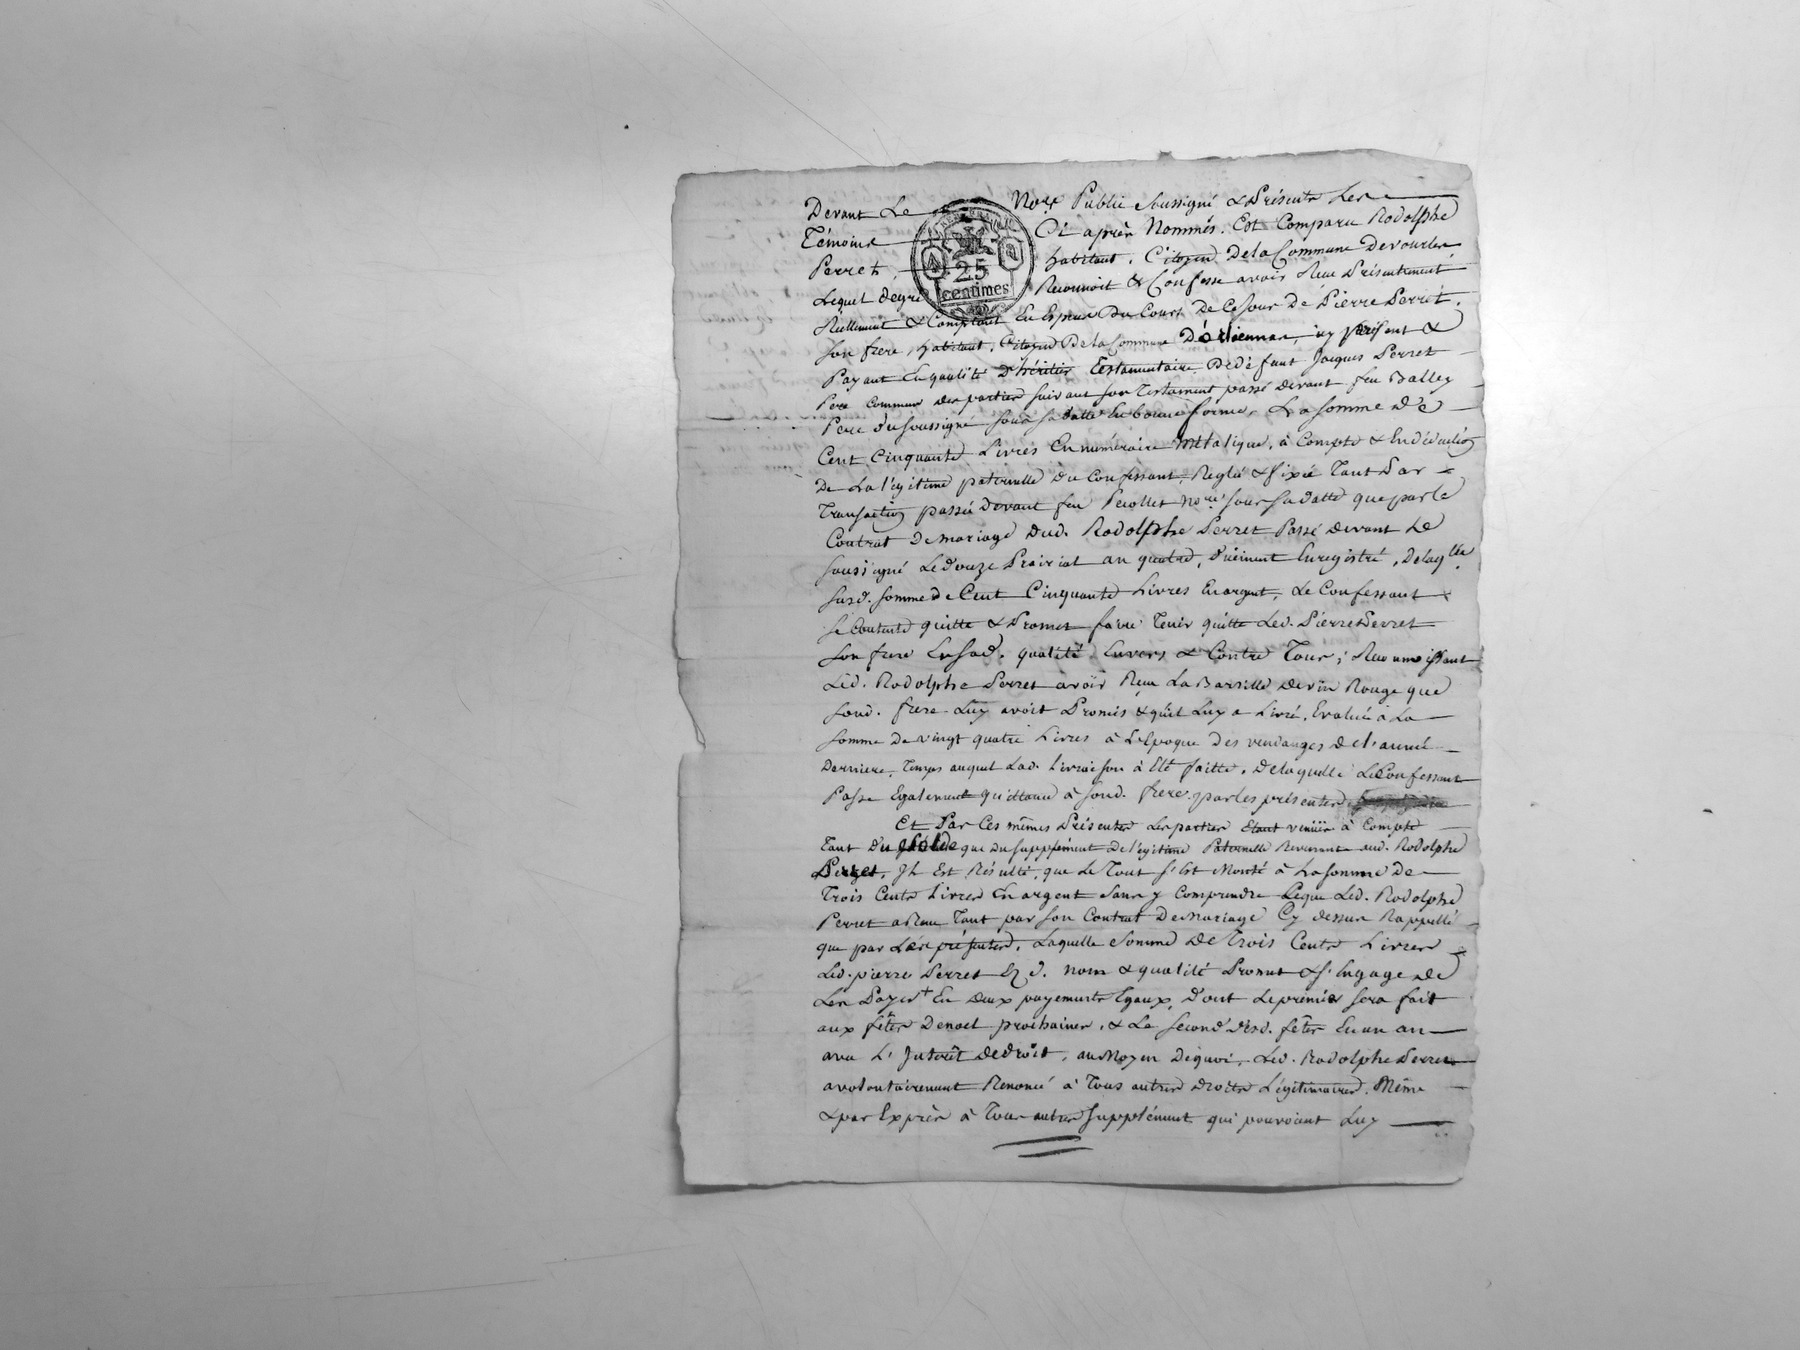 Devant Le Nore Public Soussigné & Présents Les
Témoins Ci après Nommés. Est Comparu Rodolphe
Perret, habitant, Citoyen De la Commune De vourles
25
centimes
Lequel degré Reconnoit & Confesse avoir Reçu Présentement
Réellement & Comptant En Espece Du Cours De Ce Jour De Pierre Perret,
son frere, habitant, Citoyen De la Commune icy présent &
Payant En qualité d'héritier Testamentaire De défunt Jacques Perret
Pere Commun des parties suivant son Testament passé devant feu Balley
Pere du soussigné sous sa datte En bonne forme, La somme de
Cent Cinquante Livres En numéraire Métalique, à Compte & En déduction
De La légitime paternelle du Confessant, Réglée & fixée Tant Par
Transaction passée devant feu Nore. sous sa datte que par le
Contrat De mariage dud. Rodolphe Perret Passé devant Le
soussigné Le douze Prairial an quatre, düement Enregistré, De laqlle
susd. somme de Cent Cinquante Livres En argent, Le Confessant
se Contente quitte & Promet faire Tenir quitte Led. Pierre Perret
son frere En sad. qualité Envers & Contre Tous; Reconnoissant
Led. Rodolphe Perret avoir Reçu La Barrille de vin Rouge que
sond. frere Luy avoit Promis & qu'il Luy a Livré, Evaluée à La
somme De vingt quatre Livres à L'Epoque des vendanges De l'année
Derniere, Temps auquel Lad. Livraison à Eté faitte, De laquelle Le Confessant
Passe Egalement quittance à sond. frere par les présentes
Et Par Ces mêmes Présentes Les parties Etant venües à Compte
Tant du solde que du supplément De légitime Paternelle Revenant aud. Rodolphe
Perret, Il Est Résulté, que Le Tout s'Est Monté à La somme de
Trois Cents Livres En argent sans y Comprendre Ce que Led. Rodolphe
Perret a Reçu Tant par son Contrat De Mariage Cy dessus Rappellé
que par Les présentes, Laquelle Somme De Trois Cents Livres
Led. pierre Perret Ez d. nom & qualité Promet & s'Engage de
Les Payer + En deux payements Egaux, dont Le premier sera fait
aux fêtes De noel prochaines, & Le second desd. fêtes En un an
avec L'Intérêt de droit, au Moyen De quoi, Led. Rodolphe Perret
a volontairement Renoncé à Tous autres droits Légitimaires, Même
& par Exprès à Tous autres supplément qui pouvoient Luy